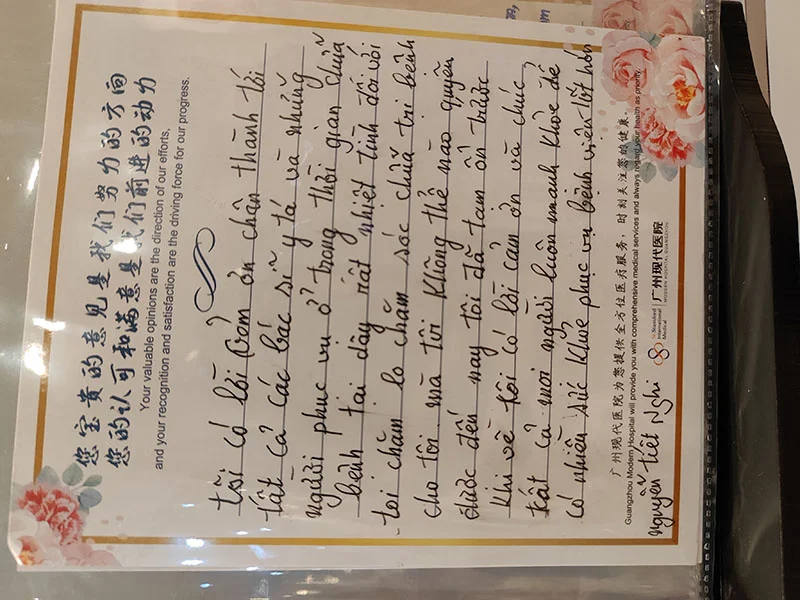 您宝贵的意见是我们努力的方向
您的认可和满意是我们前进的动力
Your valuable opinions are the direction of our efforts,
and your recognition and satisfaction are the driving force for our progress.
tôi có lời cảm ơn chân thành tới
tất cả các bác sĩ y tá và những
người phục vụ ở trong thời gian chữa
bệnh tại đây rất nhiệt tình đối với
tôi chăm lo chăm sóc chữa trị bệnh
cho tôi mà tôi không thể nào quyên
được đến nay tôi đã tạm ổn trước
khi về tôi có lời cảm ơn và chúc
tất cả mọi người luôn mạnh khỏe để
có nhiều sức khỏe phục vụ bệnh viện tốt hơn
广州现代医院为您提供全方位医疗服务，时刻关注您的健康。
Guangzhou Modern Hospital will provide you with comprehensive medical services and always regard your health as priority.
Nguyễn Tiết Nghi
St. Stamford International Medical
广州现代医院
MODERN HOSPITAL GUANGZHOU